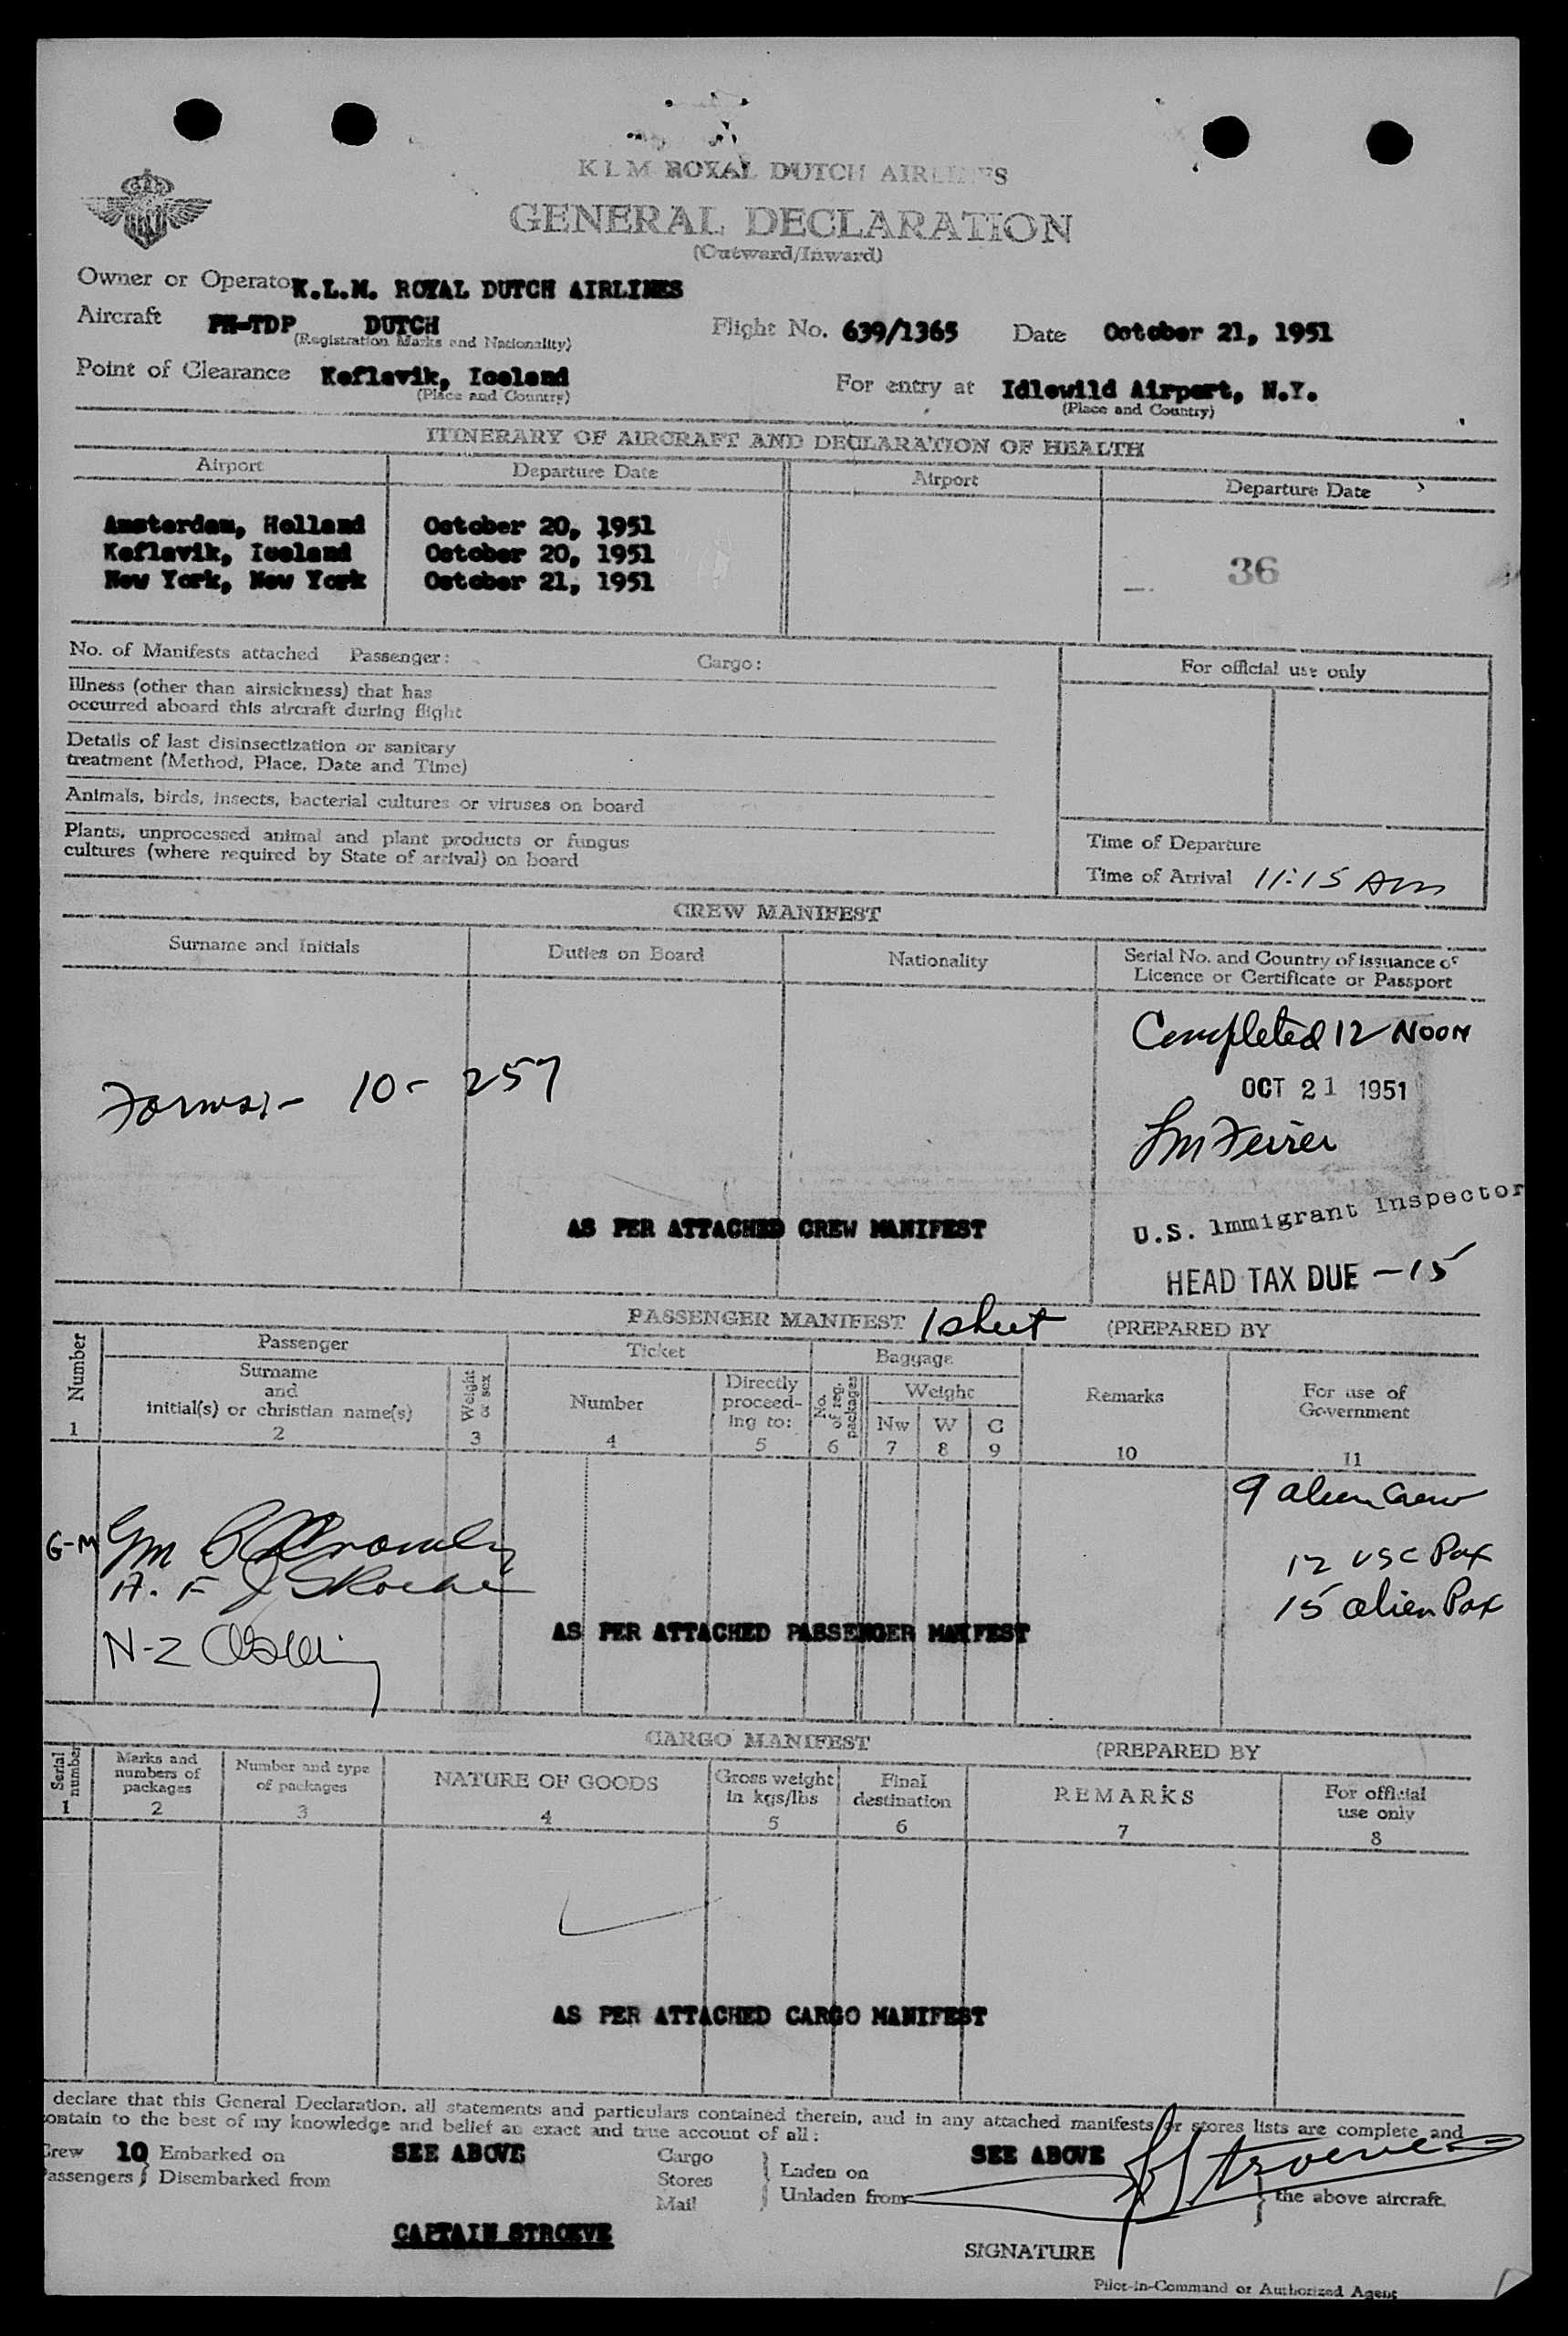 KLM ROYAL DUTCH AIRLINES
GENERAL DECLARATION
(Outward/Inward)
Owner or Operator K.L.M. ROYAL DUTCH AIRLINES
Aircraft PH-TDP DUTCH Flight No. 639/1365 Date October 21, 1951
(Registration Marks and Nationality)
Point of Clearance Keflavik, Iceland For entry at Idlewild Airport, N.Y.
(Place and Country) (Place and Country)
ITINERARY OF AIRCRAFT AND DECLARATION OF HEALTH
Airport Departure Date Airport Departure Date
Amsterdam, Holland October 20, 1951
Keflavik, Iceland October 20, 1951
New York, New York October 21, 1951
36
No. of Manifests attached Passenger: Cargo:
For official use only
Illness (other than airsickness) that has
occurred aboard this aircraft during flight
Details of last disinsectization or sanitary
treatment (Method, Place, Date and Time)
Animals, birds, insects, bacterial cultures or viruses on board
Plants, unprocessed animal and plant products or fungus
cultures (where required by State of arrival) on board
Time of Departure
Time of Arrival 11:15 Am
CREW MANIFEST
Surname and Initials Duties on Board Nationality Serial No. and Country of issuance of
Licence or Certificate or Passport
Completed 12 NOON
10 - 257
OCT 21 1951
U.S. Immigrant Inspector
AS PER ATTACHED CREW MANIFEST
HEAD TAX DUE - 15
PASSENGER MANIFEST 1 sheet (PREPARED BY
Number Passenger Ticket Baggage Remarks For use of
Government
Surname
and
initial(s) or christian name(s)
Weight
or sex
Number
Directly
proceed-
ing to:
No.
of reg.
packages
Weight
Nw W C
1 2 3 4 5 6 7 8 9 10 11
9 alien Crew
12 USC Pax
15 alien Pax
G-M
N-Z
AS PER ATTACHED PASSENGER MANIFEST
CARGO MANIFEST (PREPARED BY
Serial
number
Marks and
numbers of
packages
Number and type
of packages
NATURE OF GOODS
Gross weight
in kgs/lbs
Final
destination
REMARKS
For official
use only
1 2 3 4 5 6 7 8
AS PER ATTACHED CARGO MANIFEST
declare that this General Declaration, all statements and particulars contained therein, and in any attached manifests or stores lists are complete and
contain to the best of my knowledge and belief an exact and true account of all:
Crew 10 Embarked on SEE ABOVE Cargo Laden on SEE ABOVE
Passengers Disembarked from Stores
Mail Unladen from the above aircraft.
CAPTAIN STROEVE
Stroeve
SIGNATURE
Pilot-in-Command or Authorized Agent